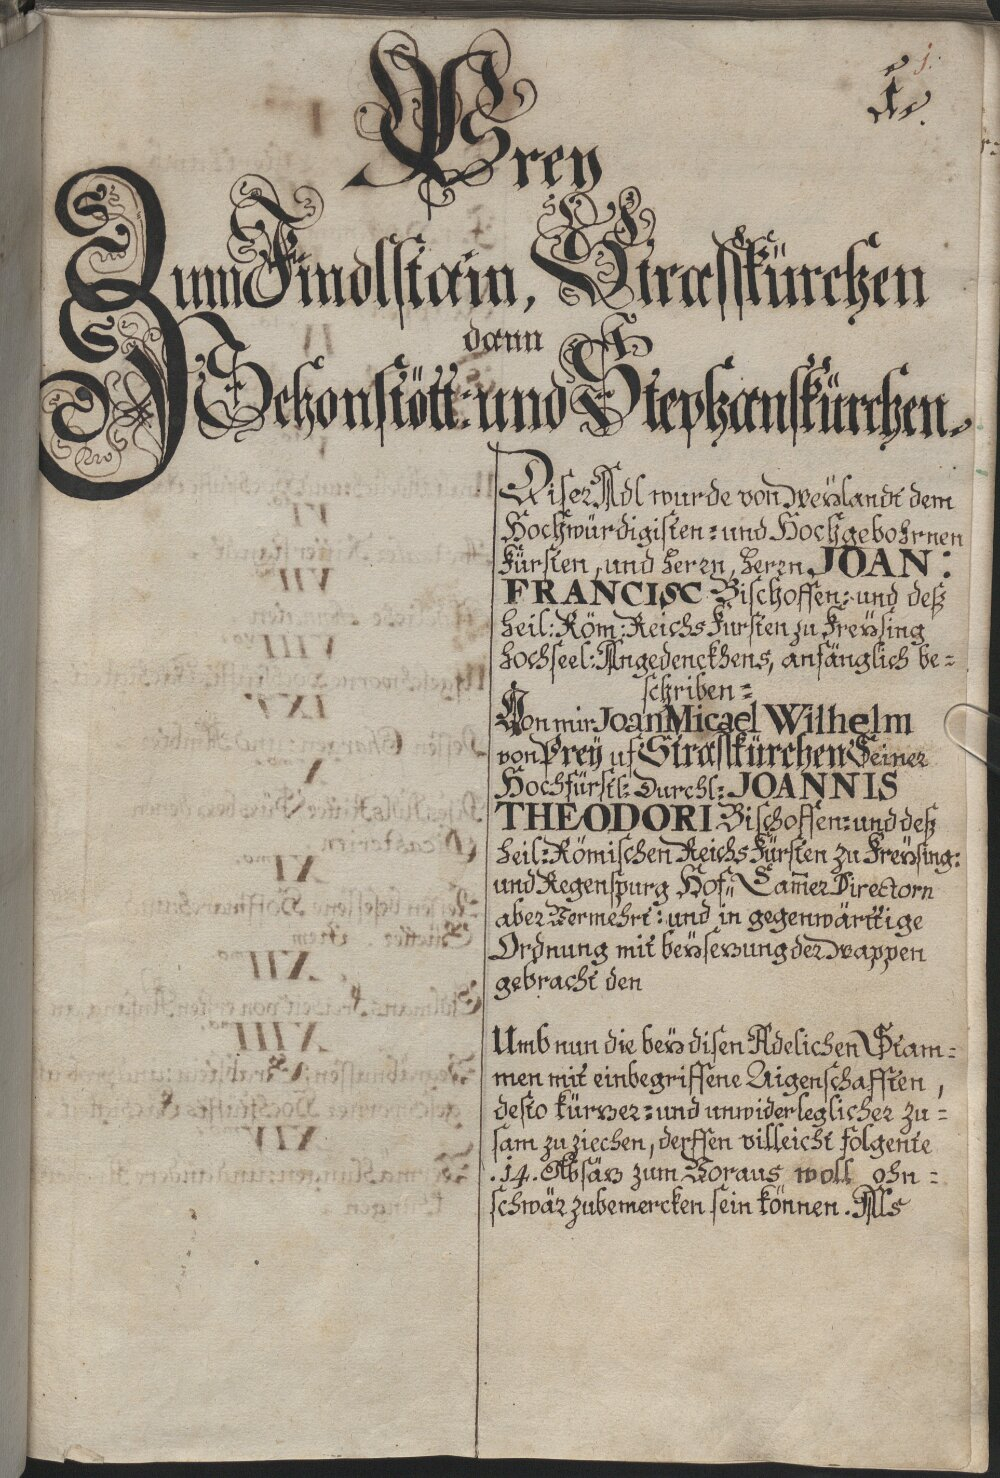 1.
1.
Prey
Zum Findlstain, Strasskürchen
dann
Schonstött= und Stephanskürchen.
Diser Adl wurde von weylandt dem
Hochwürdigisten= und Hochgebohrnen
Fürsten, und Herrn, Herrn JOAN:
FRANCISC Bischoffen= und deß
Heil: Röm: Reichs Fursten zu Freysing
Hochseel: Angedenckhens, anfänglich be=
schriben=
Von mir Joan Micael Wilhelm
von Prey uf Strasskürchen Seiner
Hochfürstl: Durchl: JOANNIS
THEODORI Bischoffen= und deß
Heil: Römischen Reichs Fürsten zu Freysing:
und Regenspurg Hof= Cam̄er Directorn
aber Vermehrt: und in gegenwärttige
Ordnung mit beysezung der Wappen
gebracht den
Umb nun die bey disen Adelichen Stam=
men mit einbegriffene Aigenschafften,
desto kürzer= und unwiderleglicher zu=
sam zu ziechen, derffen villeicht folgente
.14. Absäz zum Voraus woll ohn=
schwär zubemercken sein können. Als